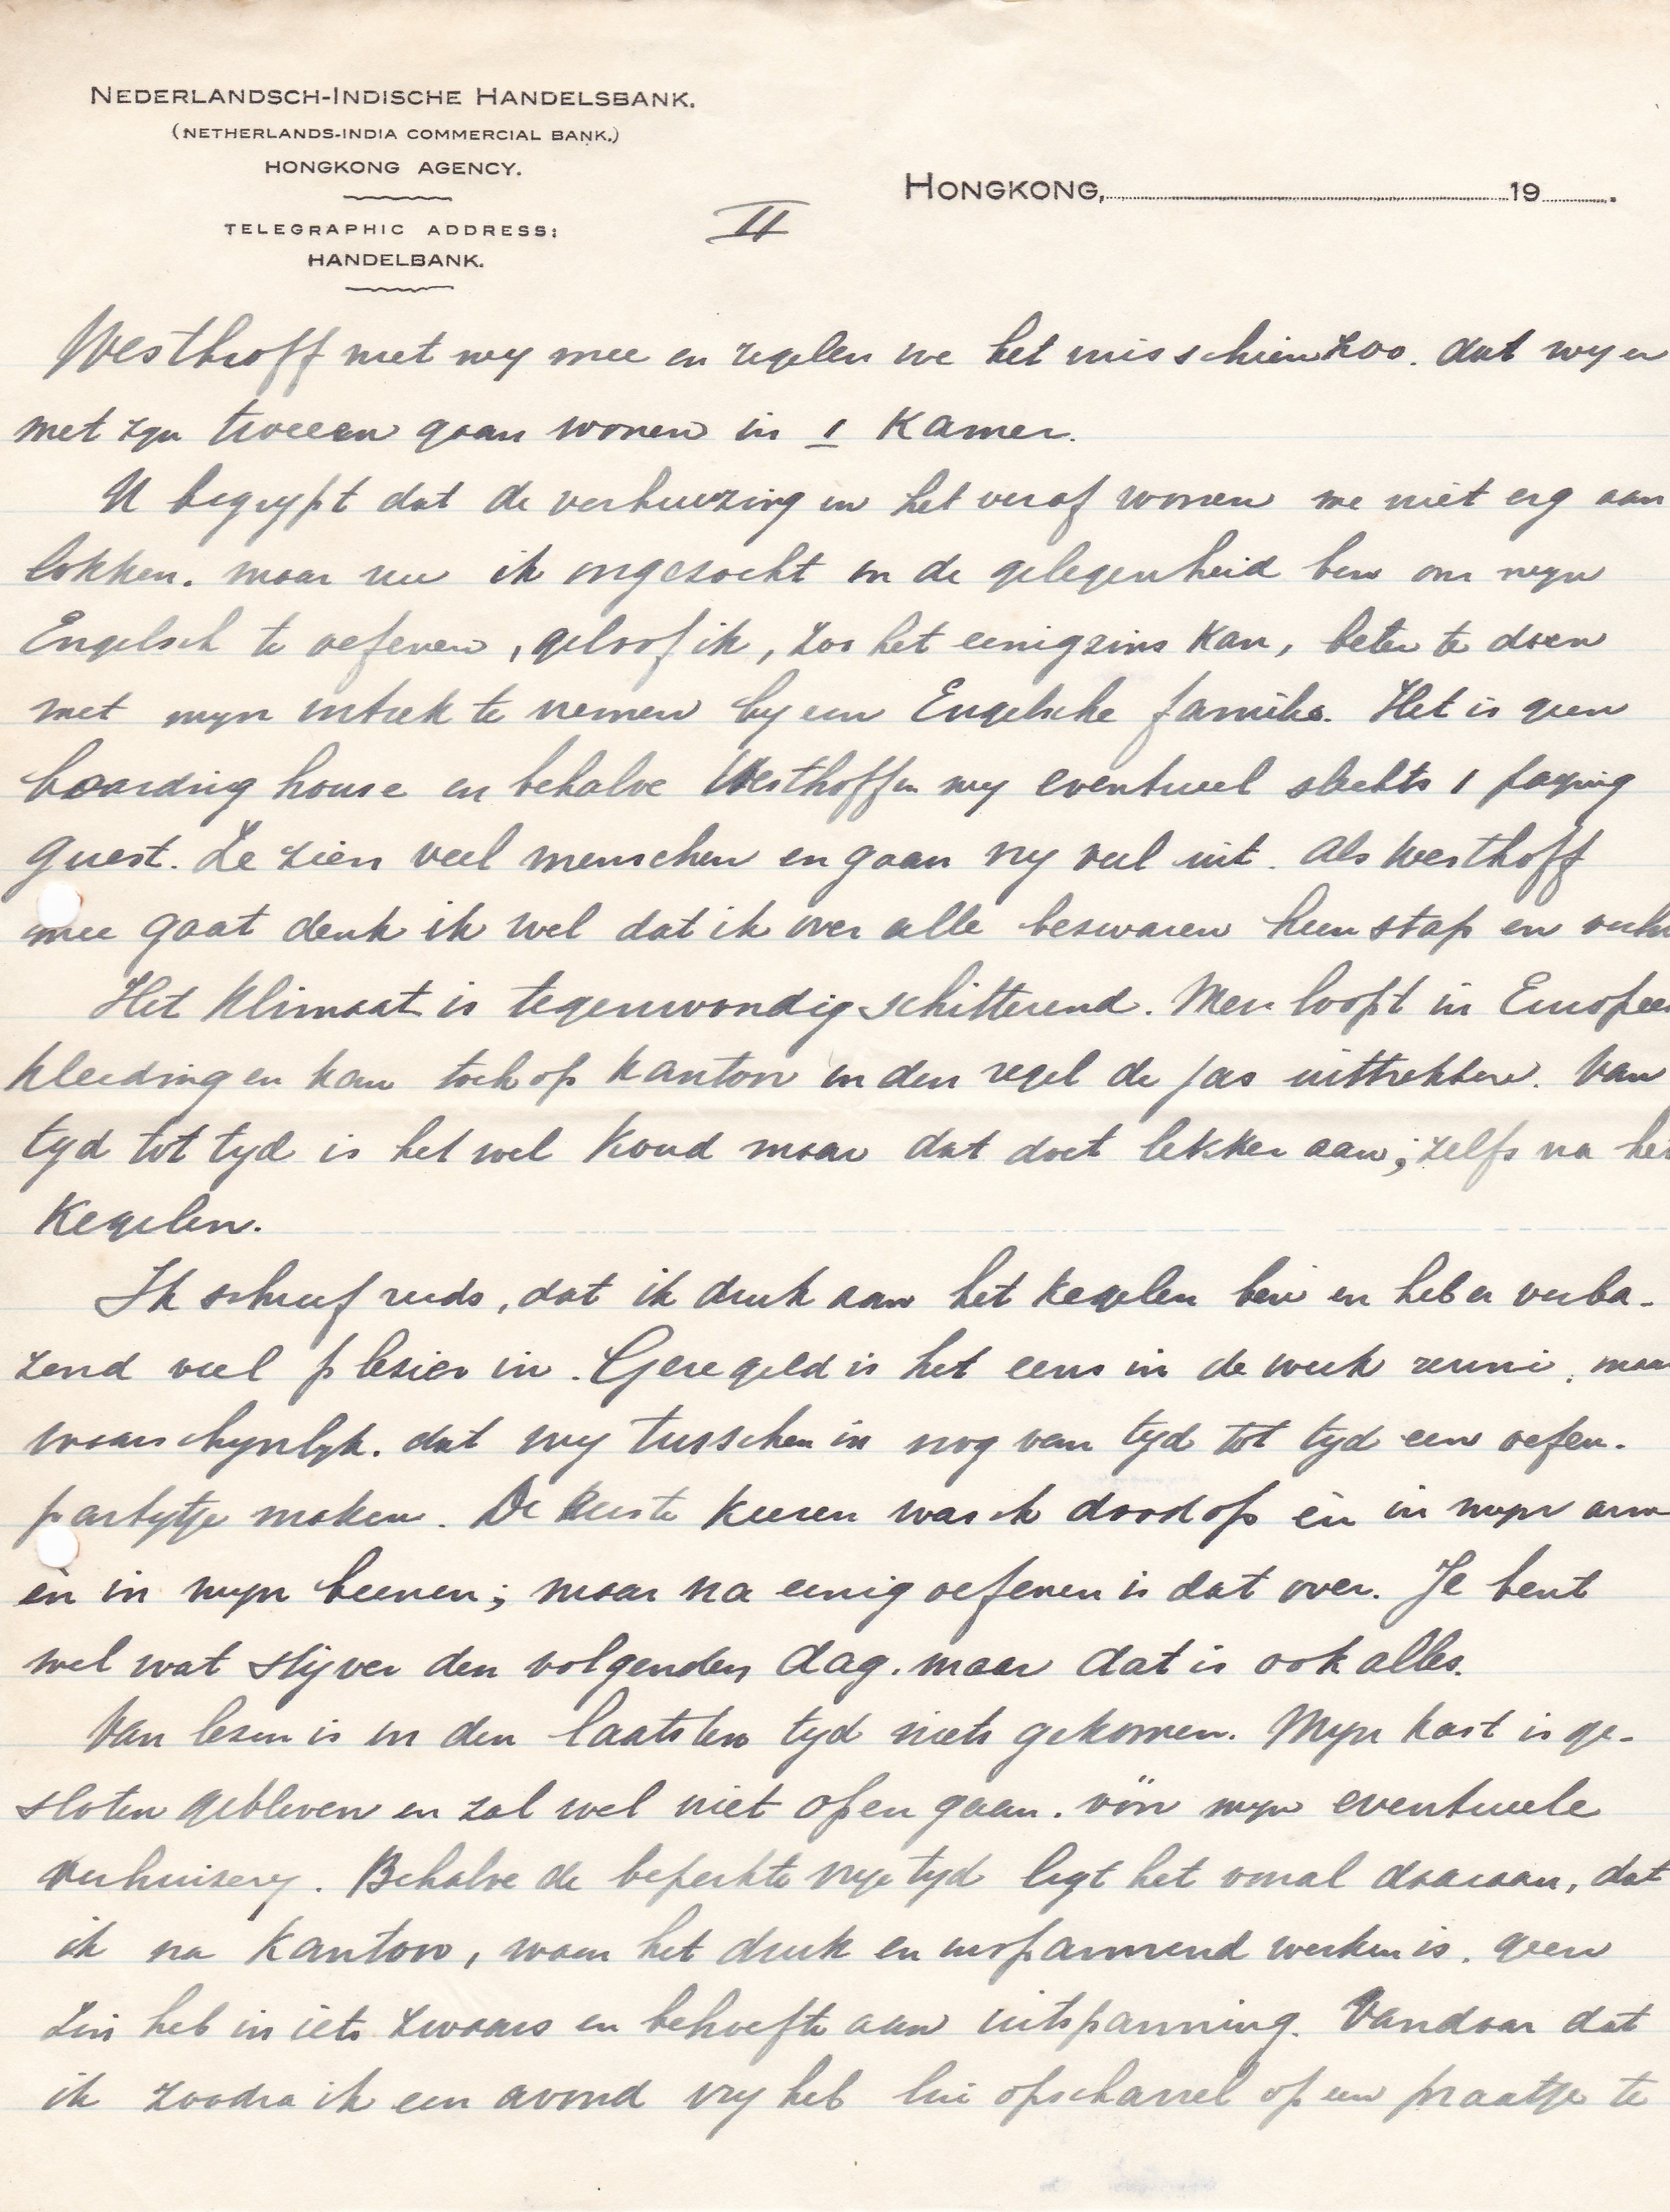 NEDERLANDSCH-INDISCHE HANDELSBANK.
(NETHERLANDS-INDIA COMMERCIAL BANK.)
HONGKONG AGENCY.
TELEGRAPHIC ADDRESS:
HANDELBANK.
HONGKONG, 19 .
II
Westhoff met my mee en regelen we het misschien zoo. dat wy er
met zyn tweeen gaan wonen in 1 Kamer.
U begrypt dat de verhuizing en het veraf wonen me niet erg aan
lokken. maar nu ik ongezocht in de gelegenheid ben om myn
Engelsch te oefenen, geloof ik, zoo het eenigzins kan, beter te doen
met myn intrek te nemen by een Engelsche familie. Het is geen
boarding house en behalve Westhoff en my eventueel slechts 1 paying
guest. Ze zien veel menschen en gaan vry veel uit. Als Westhoff
mee gaat denk ik wel dat ik over alle bezwaren heen stap en verhu
Het klimaat is tegenwoordig schitterend. Men loopt in Europees
kleeding en kan toch op kantoor in den regel de jas uittrekken. Van
tyd tot tyd is het wel koud maar dat doet lekker aan; zelfs na het
Kegelen.
Ik schreef reeds, dat ik druk aan het kegelen ben en heb er verba-
zend veel plesier in. Geregeld is het eens in de week reuni, maar
waarschynlyk. dat wy tusschen in nog van tyd tot tyd een oefen-
partytje maken. De eerste keeren was ik doodop èn in myn arm
èn in myn beenen; maar na eenig oefenen is dat over. Je bent
wel wat styver den volgenden dag. maar dat is ook alles.
Van lezen is in den laatsten tyd niets gekomen. Myn kast is ge-
sloten gebleven en zal wel niet open gaan. vóór myn eventueele
verhuizery. Behalve de beperkte vrye tyd legt het vooral daaraan, dat
ik na kantoor, waar het druk en inspannend werken is. geen
zin heb in iets zwaars en behoefte aan uitspanning. Vandaar dat
ik zoodra ik een avond vry heb lui opscharrel op een praatje te